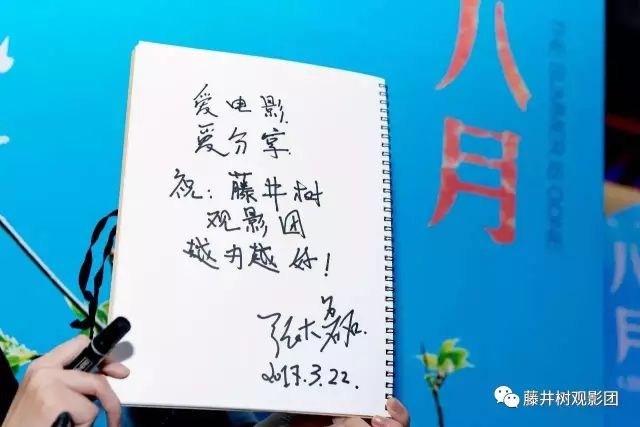 爱电影
爱分享
祝:藤井树
观影团
越办越好!
张大磊.
2017.3.22.
八月
THE SUMMER IS GONE
八月
藤井树观影团